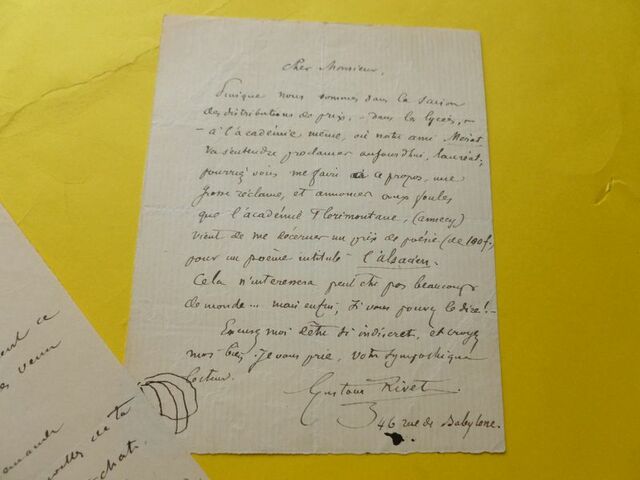 Cher Monsieur,
Puisque nous sommes dans la saison
des distributions de prix, - dans les lycées, -
- à l'académie même, où notre ami Mérat
va s'entendre proclamer aujourd'hui, lauréat,
pourriez vous me faire à ce propos, une
grosse réclame, et annoncer aux foules
que l'académie Florimontane, (annecy)
vient de me décerner un prix de poésie (de 100f.
pour un poème intitulé l'alsacien.
Cela n'interessera peut être pas beaucoup
de monde... mais enfin, si vous pouvez le dire! -
Excusez moi d'être si indiscret, et croyez
moi bien, je vous prie, votre sympathique
lecteur.
Gustave Rivet
46 rue de Babylone.
ce
venu
de ta